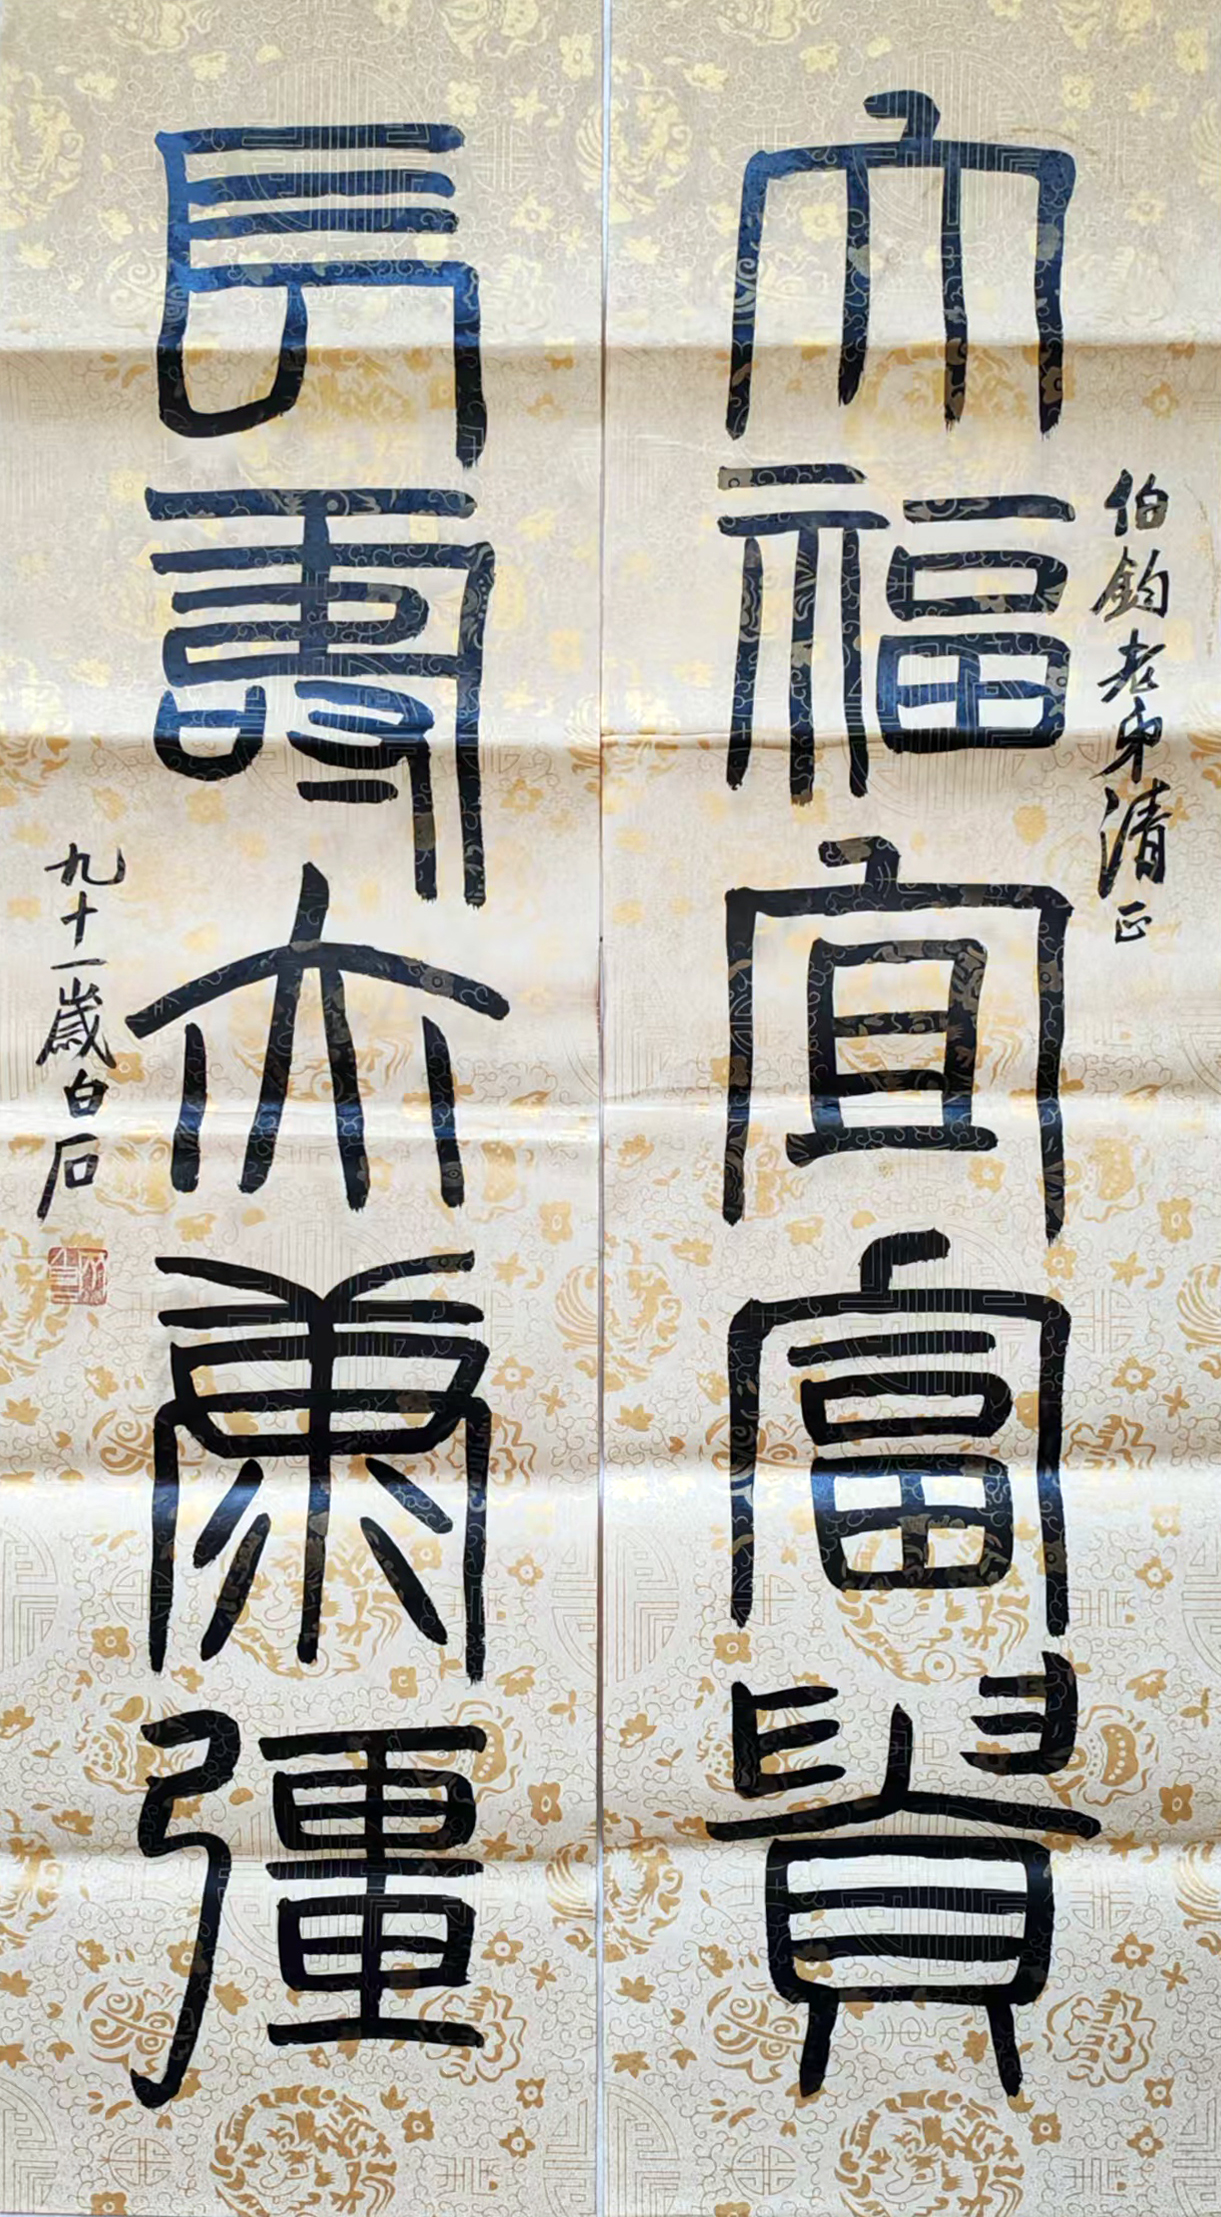 伯鈞老弟清正
大福宜富貴
長壽亦康彊
九十一歲白石